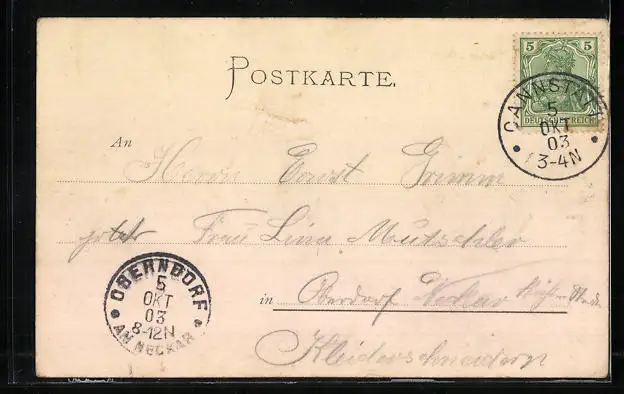 5 5
DEUTSCHES REICH
POSTKARTE.
CANNSTATT
5
OKT
03
3-4N
An
Herrn Ernst Grimm
Frau Lina Mutschler
OBERNDORF
5
OKT
03
8-12N
AM NECKAR
in Oberdorf Neckar
Kleiderschneiderei